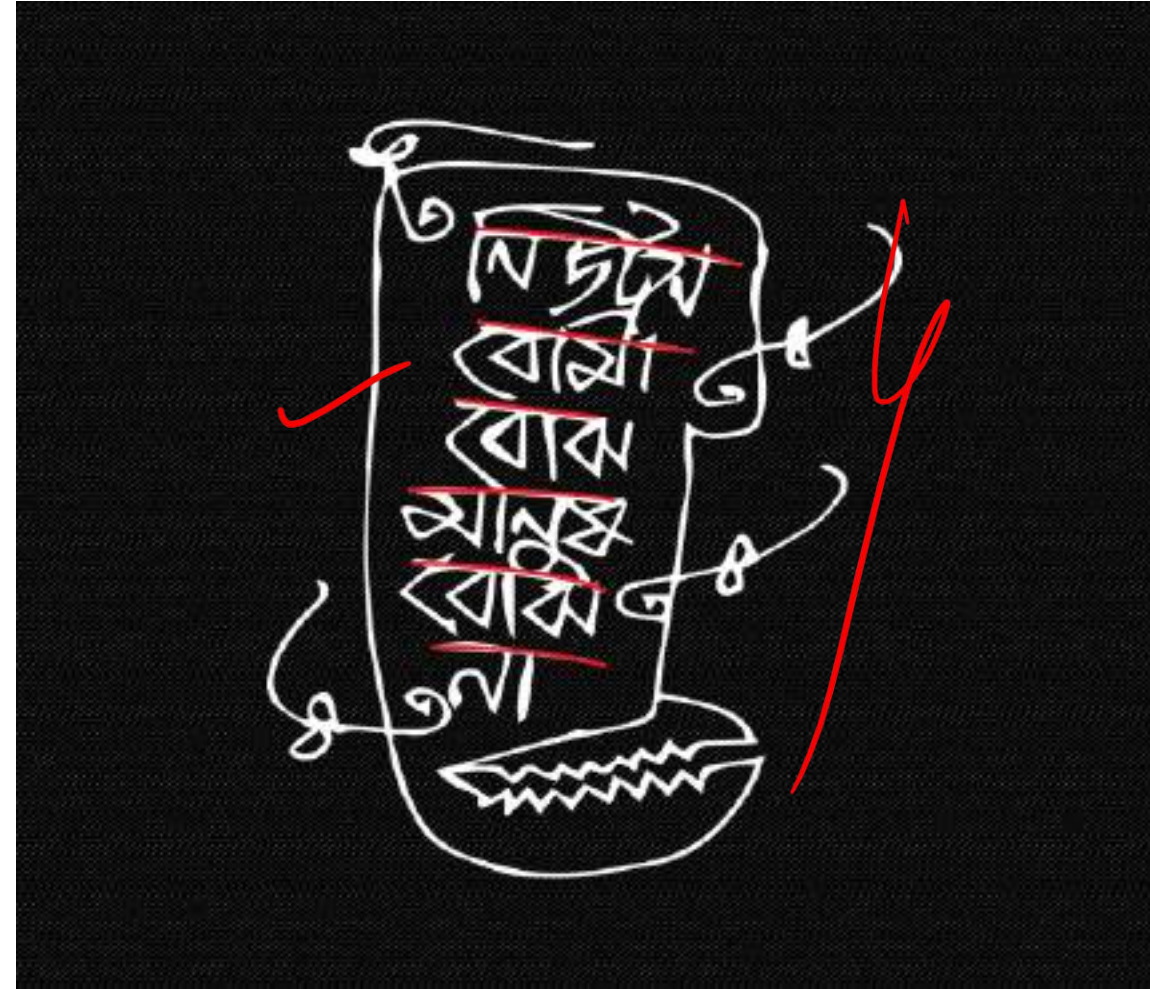 নিউট্রন
বোমা
বোঝ
মানুষ
বোঝ
না